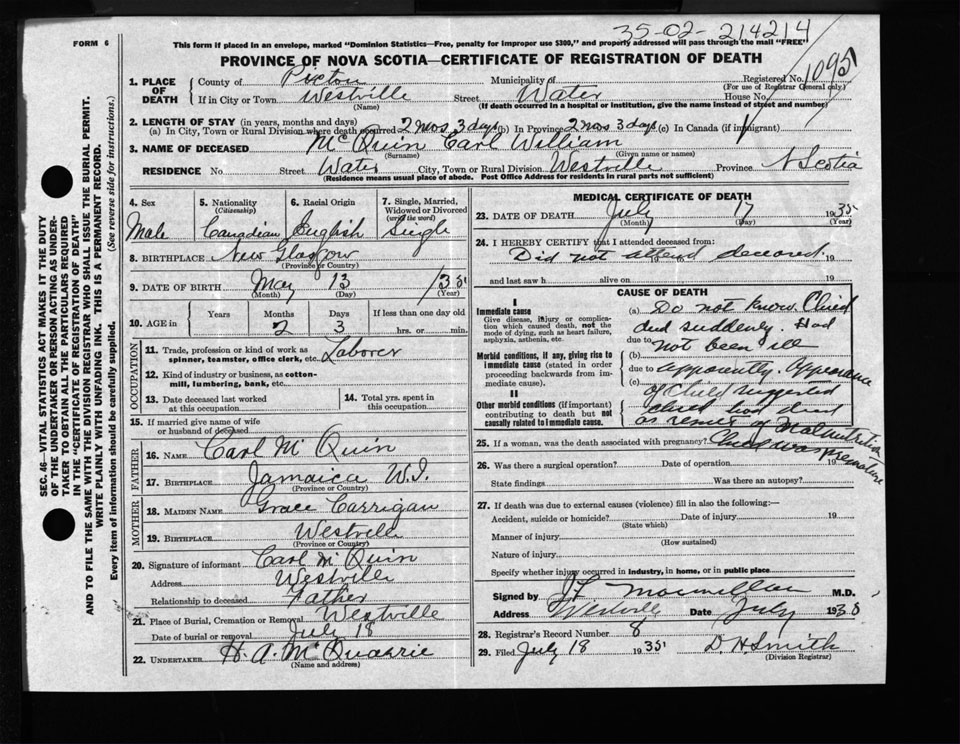 35-02-214214
FORM 6
This form if placed in an envelope, marked "Dominion Statistics—Free, penalty for improper use $300," and properly addressed will pass through the mail "FREE"
PROVINCE OF NOVA SCOTIA—CERTIFICATE OF REGISTRATION OF DEATH
1. PLACE OF DEATH County of Pictou Municipality of Registered No. 1095
(For use of Registrar General only.)
If in City or Town Westville Street Water House No.
(Name) (If death occurred in a hospital or institution, give the name instead of street and number)
2. LENGTH OF STAY (in years, months and days)
(a) In City, Town or Rural Division where death occurred 2 mos 3 days (b) In Province 2 mos 3 days (c) In Canada (if immigrant)
3. NAME OF DECEASED McQuin Carl William
(Surname) (Given name or names)
RESIDENCE No. Street Water City, Town or Rural Division Westville Province N Scotia
(Residence means usual place of abode. Post Office Address for residents in rural parts not sufficient)
SEC. 46—VITAL STATISTICS ACT MAKES IT THE DUTY
OF THE UNDERTAKER OR PERSON ACTING AS UNDER-
TAKER TO OBTAIN ALL THE PARTICULARS REQUIRED
IN THE "CERTIFICATE OF REGISTRATION OF DEATH"
AND TO FILE THE SAME WITH THE DIVISION REGISTRAR WHO SHALL ISSUE THE BURIAL PERMIT.
WRITE PLAINLY WITH UNFADING INK. THIS IS A PERMANENT RECORD.
Every item of information should be carefully supplied. (See reverse side for instructions.)
4. Sex
Male
5. Nationality
(Citizenship)
Canadian
6. Racial Origin
English
7. Single, Married,
Widowed or Divorced
(write the word)
Single
8. BIRTHPLACE New Glasgow
(Province or Country)
9. DATE OF BIRTH May 13 1935
(Month) (Day) (Year)
10. AGE in Years Months Days If less than one day old
2 3 hrs. or min.
OCCUPATION
11. Trade, profession or kind of work as
spinner, teamster, office clerk, etc. Laborer
12. Kind of industry or business, as cotton-
mill, lumbering, bank, etc.
13. Date deceased last worked
at this occupation
14. Total yrs. spent in
this occupation
15. If married give name of wife
or husband of deceased
FATHER
16. Name Carl McQuin
17. Birthplace Jamaica W.I.
(Province or Country)
MOTHER
18. Maiden Name Grace Carrigan
19. Birthplace Westville
(Province or Country)
20. Signature of informant Carl McQuin
Address Westville
Relationship to deceased Father
21. Place of Burial, Cremation or Removal Westville
Date of burial or removal July 18
22. UNDERTAKER H. A. McQuarrie
(Name and address)
MEDICAL CERTIFICATE OF DEATH
23. DATE OF DEATH July 17 1935
(Month) (Day) (Year)
24. I HEREBY CERTIFY that I attended deceased from:
Did not attend deceased 19
and last saw h alive on 19
CAUSE OF DEATH
I
Immediate cause
Give disease, injury or complica-
tion which caused death, not the
mode of dying, such as heart failure,
asphyxia, asthenia, etc.
Morbid conditions, if any, giving rise to
immediate cause (stated in order
proceeding backwards from im-
mediate cause).
II
Other morbid conditions (if important)
contributing to death but not
causally related to immediate cause.
(a) Do not know. Child
died suddenly. Had
due to not been ill
(b)
due to apparently. Appearance
(c) of child suggested
child had died
as result of Malnutrition
Child was premature
25. If a woman, was the death associated with pregnancy?
26. Was there a surgical operation? Date of operation 19
State findings Was there an autopsy?
27. If death was due to external causes (violence) fill in also the following:—
Accident, suicide or homicide? Date of injury 19
(State which)
Manner of injury
(How sustained)
Nature of injury
Specify whether injury occurred in industry, in home, or in public place
Signed by M.D.
Address Westville Date July 1935
28. Registrar's Record Number 8
29. Filed July 18 1935 D. H. Smith
(Division Registrar)